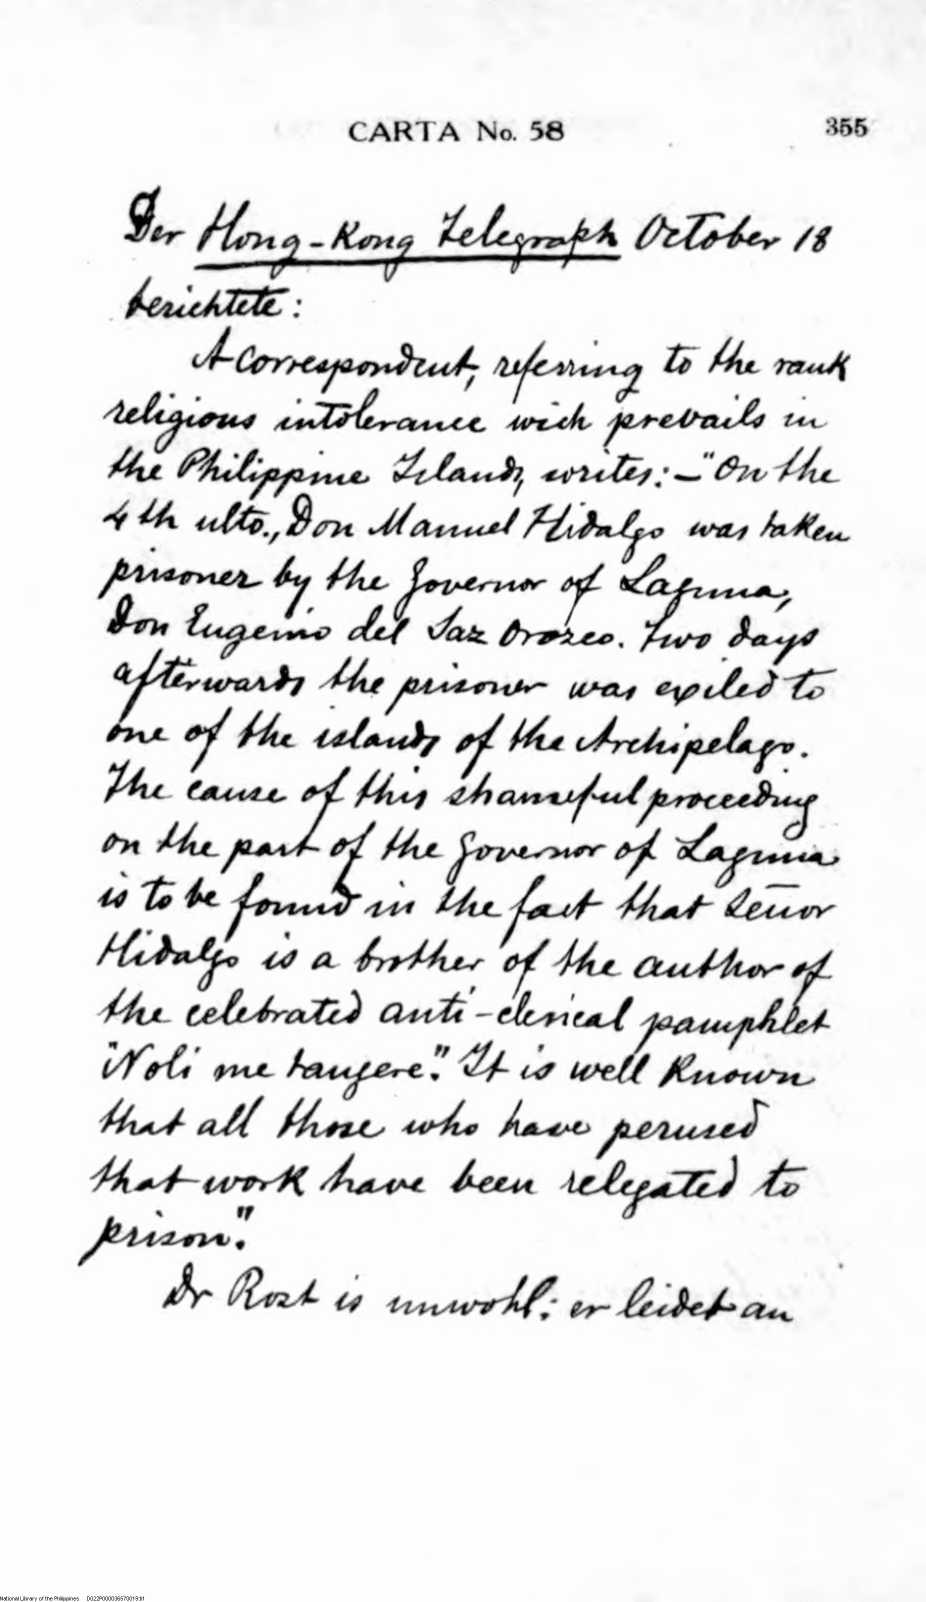 CARTA No. 58
355
Der Hong-Kong Telegraph October 18
berichtete:
A correspondent, referring to the rank
religious intolerance wich prevails in
the Philippine Islands, writes: — "On the
4th ulto., Don Manuel Hidalgo was taken
prisoner by the Governor of Laguna,
Don Eugenio del Saz Orozco. Two days
afterwards the prisoner was exiled to
one of the islands of the Archipelago.
The cause of this shameful proceeding
on the part of the Governor of Laguna
is to be found in the fact that Señor
Hidalgo is a brother of the author of
the celebrated anti-clerical pamphlet
"Noli me tangere". It is well known
that all those who have perused
that work have been relegated to
prison".
Dr Rost is unwohl: er leidet an
National Library of the Philippines